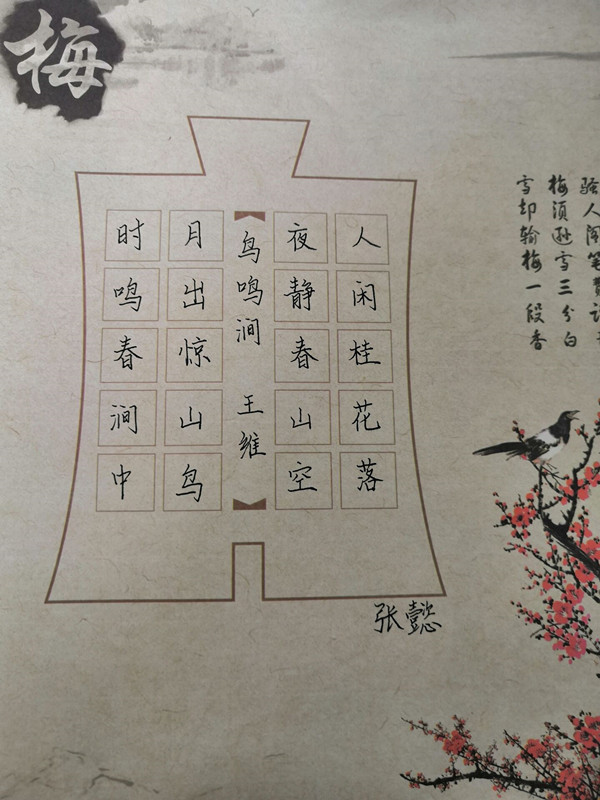 梅
骚人阁笔费
梅须逊雪三分白
雪却输梅一段香
人闲桂花落
夜静春山空
鸟鸣涧 王维
月出惊山鸟
时鸣春涧中
张懿